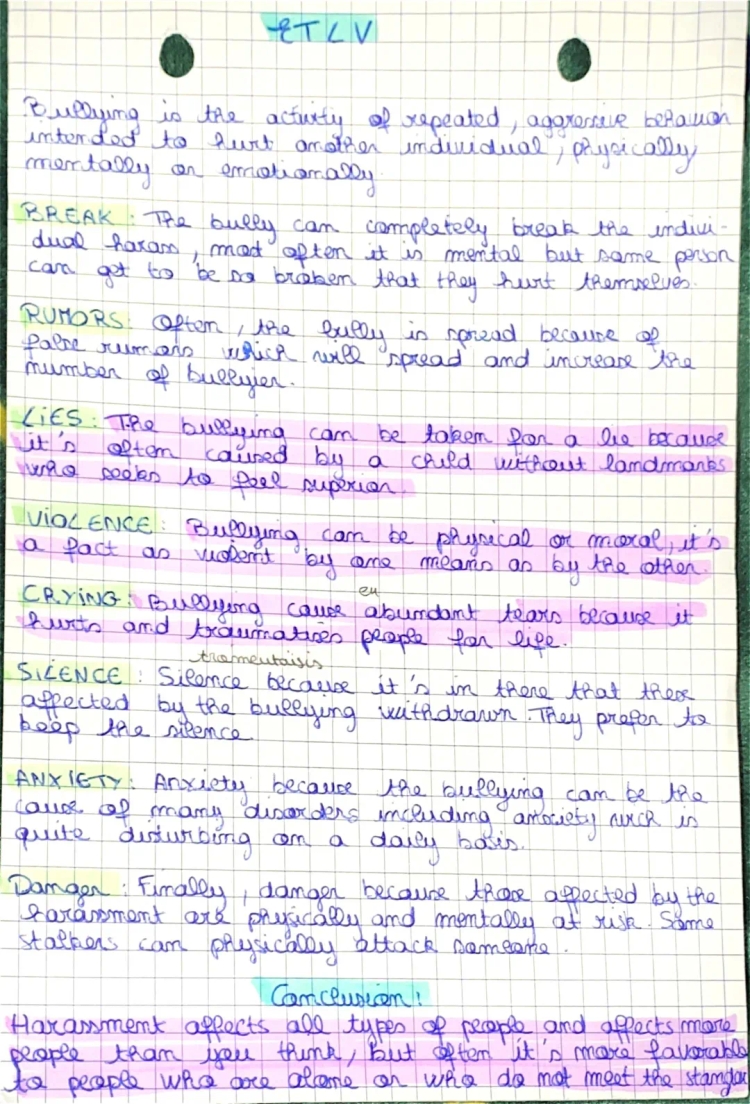 ETLV
Bullying is the activity of repeated, aggressive behavior
intended to hurt another individual, physically
mentally or emotionally.
BREAK : The bully can completely break the indivi-
dual harass, most often it is mental but some person
can get to be so broken that they hurt themselves.
RUMORS : Often, the bully is spread because of
false rumors which will spread and increase the
number of bullyier.
LiES : The bullying can be taken for a lie because
it's often caused by a child without landmarks
who seeks to feel superior.
ViOLENCE : Bullying can be physical or moral, it's
a fact as violent by one means as by the other.
eu
CRYiNG : Bullying cause abundant tears because it
hurts and traumatises people for life.
SiLENCE : Silence because it's in there that these
affected by the bullying withdrawn. They prefer to
keep the silence.
ANXIETY : Anxiety because the bullying can be the
cause of many disorders including anxiety wich is
quite disturbing on a daily basis.
Danger : Finally, danger because those affected by the
harassment are physically and mentally at risk. Some
stalkers can physically attack someone.
Conclusion!
Harassment affects all types of people and affects more
people than you think, but often it's more favorable
to people who are alone or who do not meet the